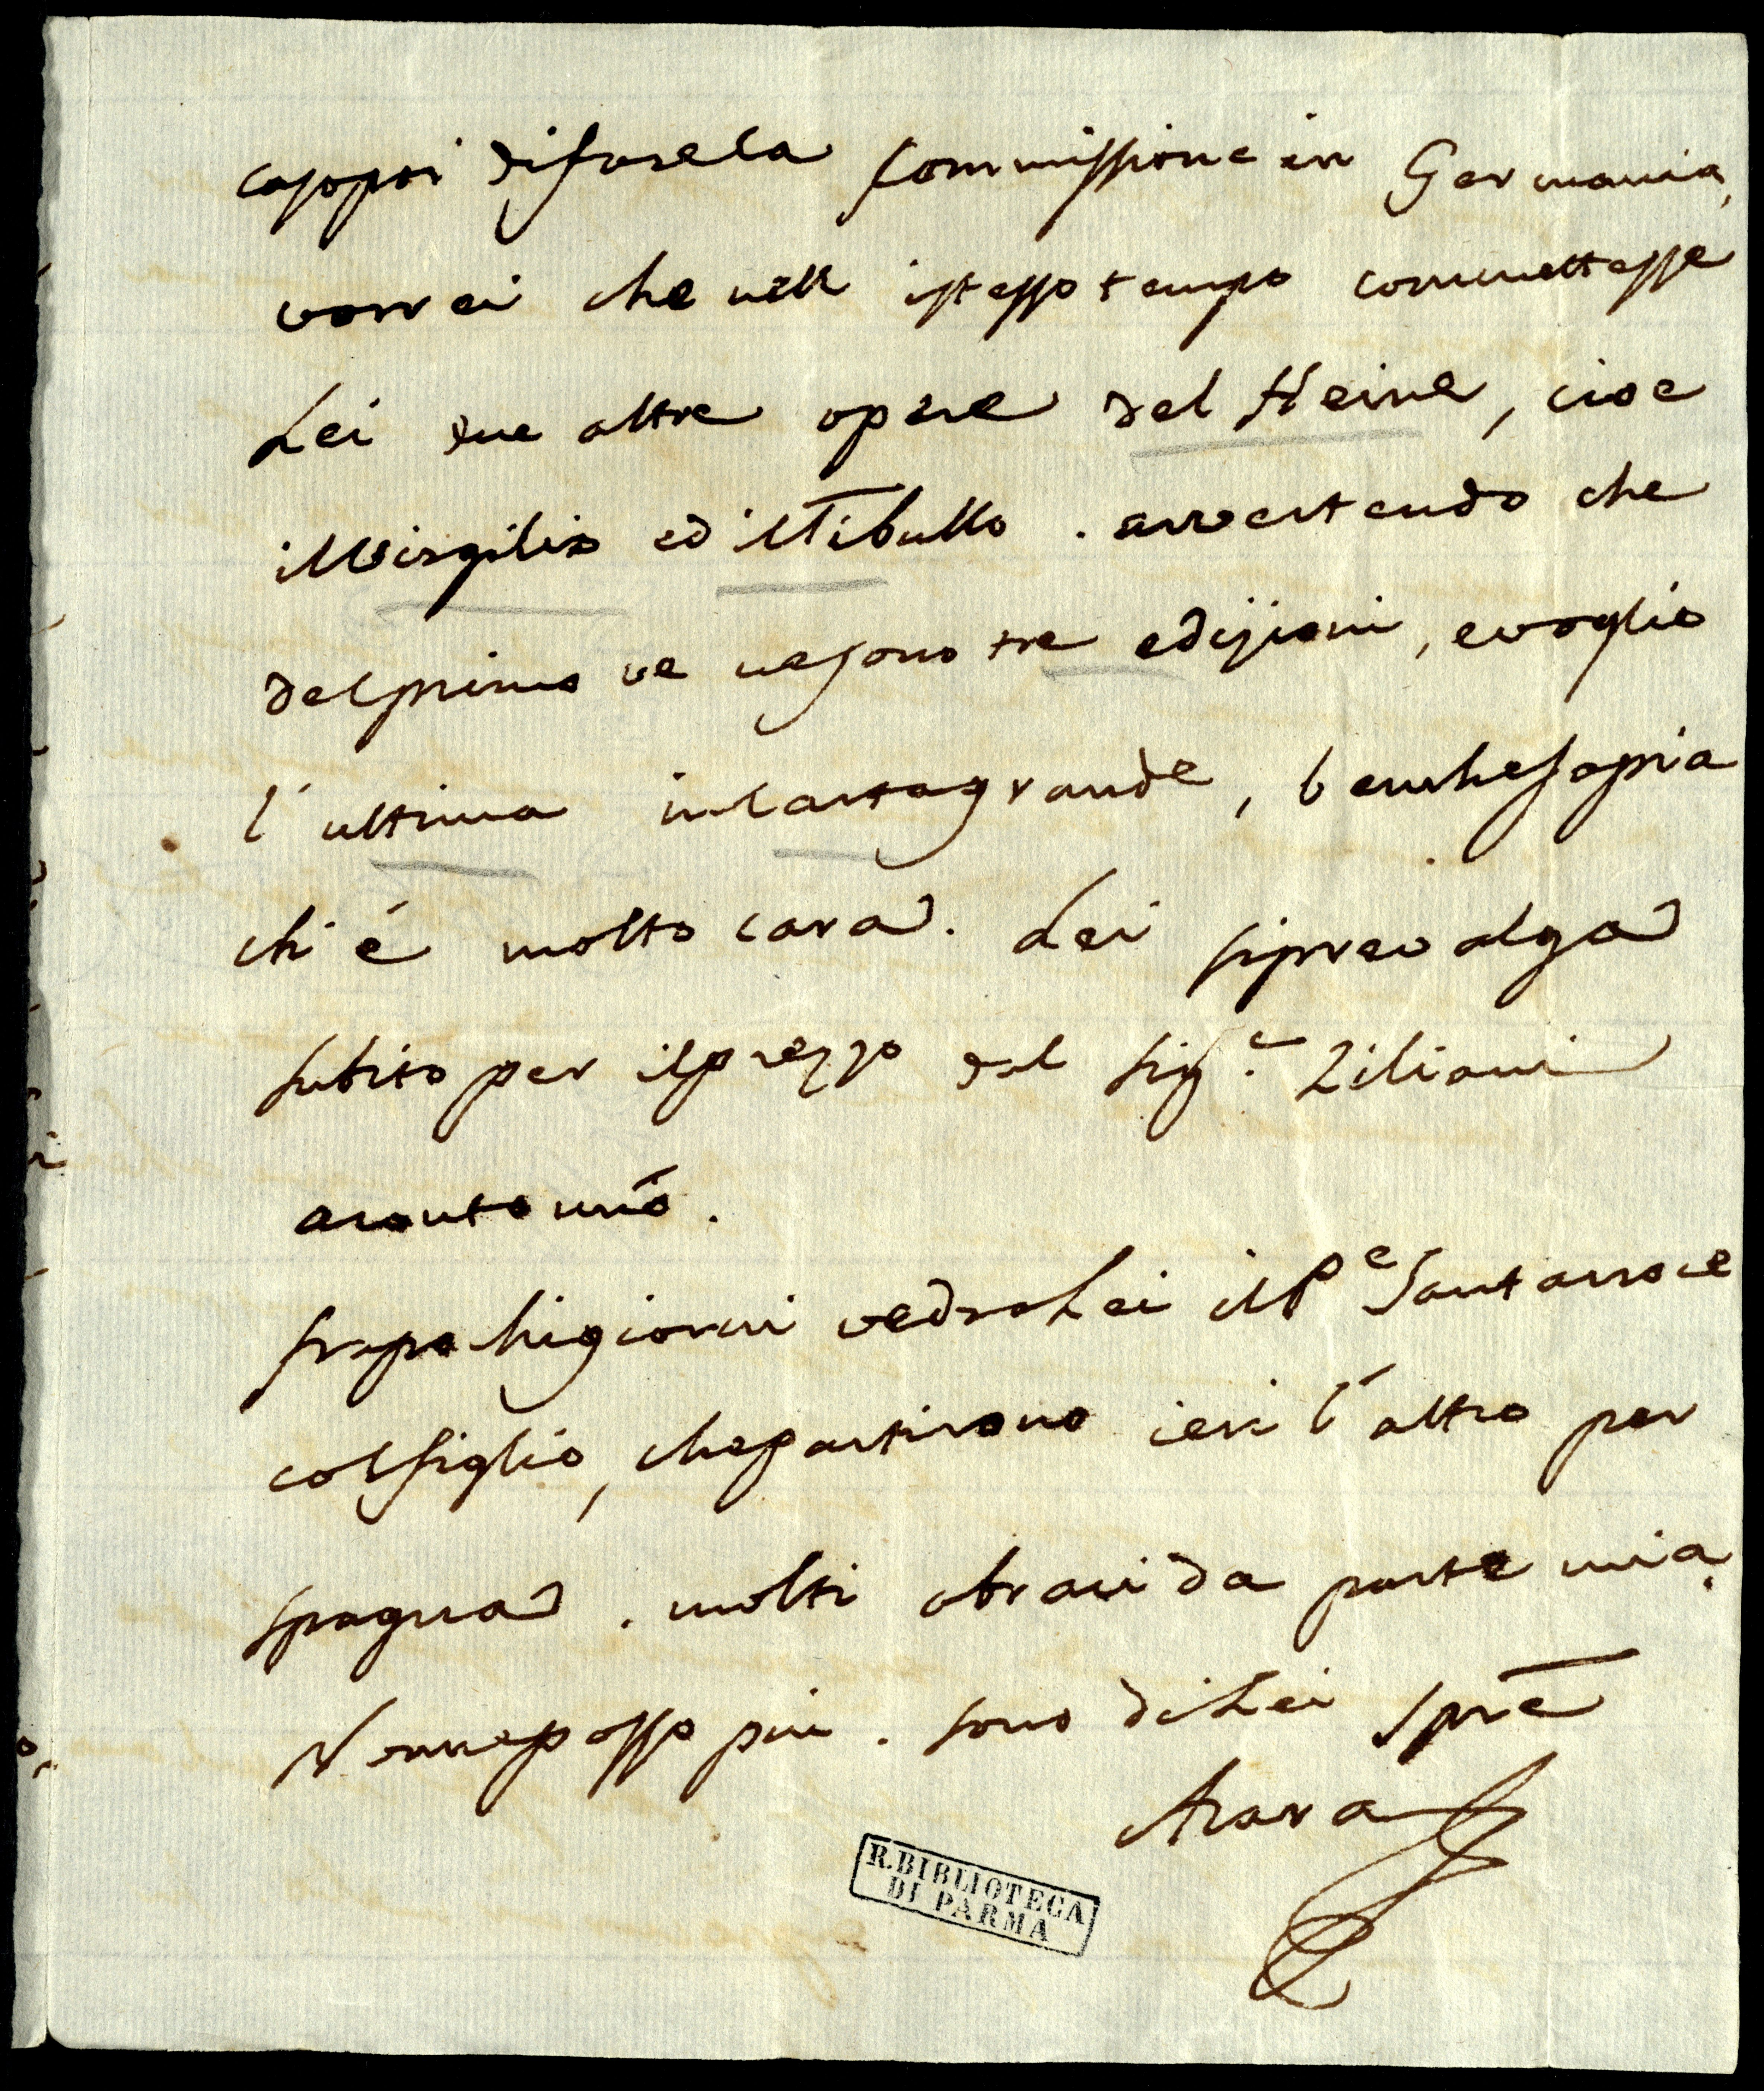 caso poi di fare la commissione in Germania,
vorrei che nell istesso tempo commettesse
Lei due altre opere del Heine, cioe
il Virgilio ed il Tibullo. avvertendo che
del primo ve ne sono tre edizioni, e voglio
l'ultima in carta grande, benche sapia
chi é molto cara. Lei si prevalga
subito per il prezzo dal Sig.e Ziliani
a conto mio.
fra pochi giorni vedra Lei il Pe Santacroce
col figlio, che partirono ieri l'altro per
Spagna. molti abraci da parte mia.
Non ne posso piu. sono di Lei Spre
Azara
R. BIBLIOTECA
DI PARMA